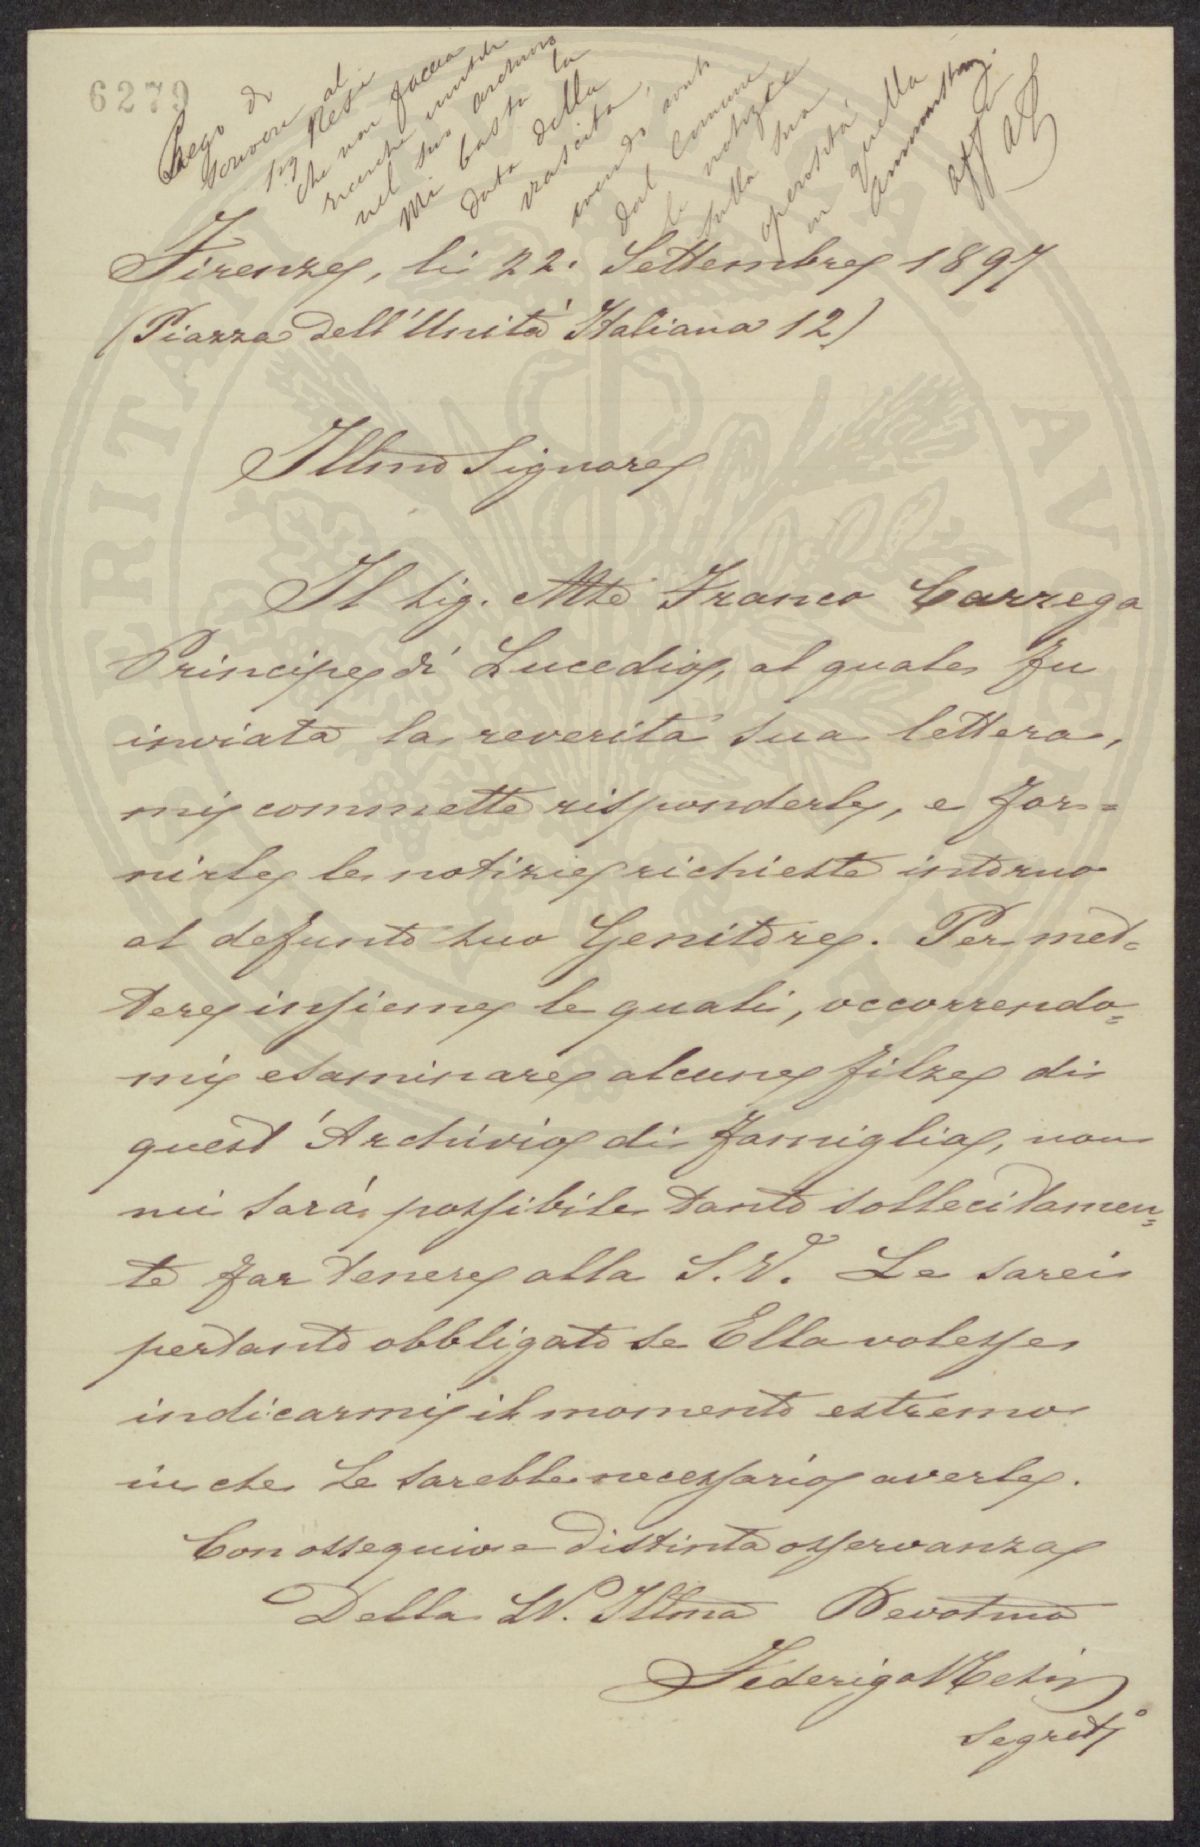 6279
Prego di
scrivere al
Sig Nesi
che non faccia
ricerche inutili
nel suo archivio
Mi basta la
data della
nascita,
avendo avuti
dal Comune
le notizie
sulla sua
operosità
in quella
Amministraz.
Firenze, li 22. Settembre 1897
(Piazza dell'Unità Italiana 12)
Illmo Signore
Il Sig. Mse Franco Carrega
Principe di Lucedio, al quale fu
inviata la reverita sua lettera,
mi commette risponderle, e for=
nirle le notizie richieste intorno
al defunto suo Genitore. Per met=
tere insieme le quali, occorrendo=
mi esaminare alcune filze di
quest'Archivio di famiglia, non
mi sarà possibile tanto sollecitamen=
te far tenere alla S.V. Le sarei
pertanto obbligato se Ella volesse
indicarmi il momento estremo
in che Le sarebbe necessario averle.
Con ossequio e distinta osservanza
Della S.V. Illma Devotmo
Federigo Nesi
Segret°